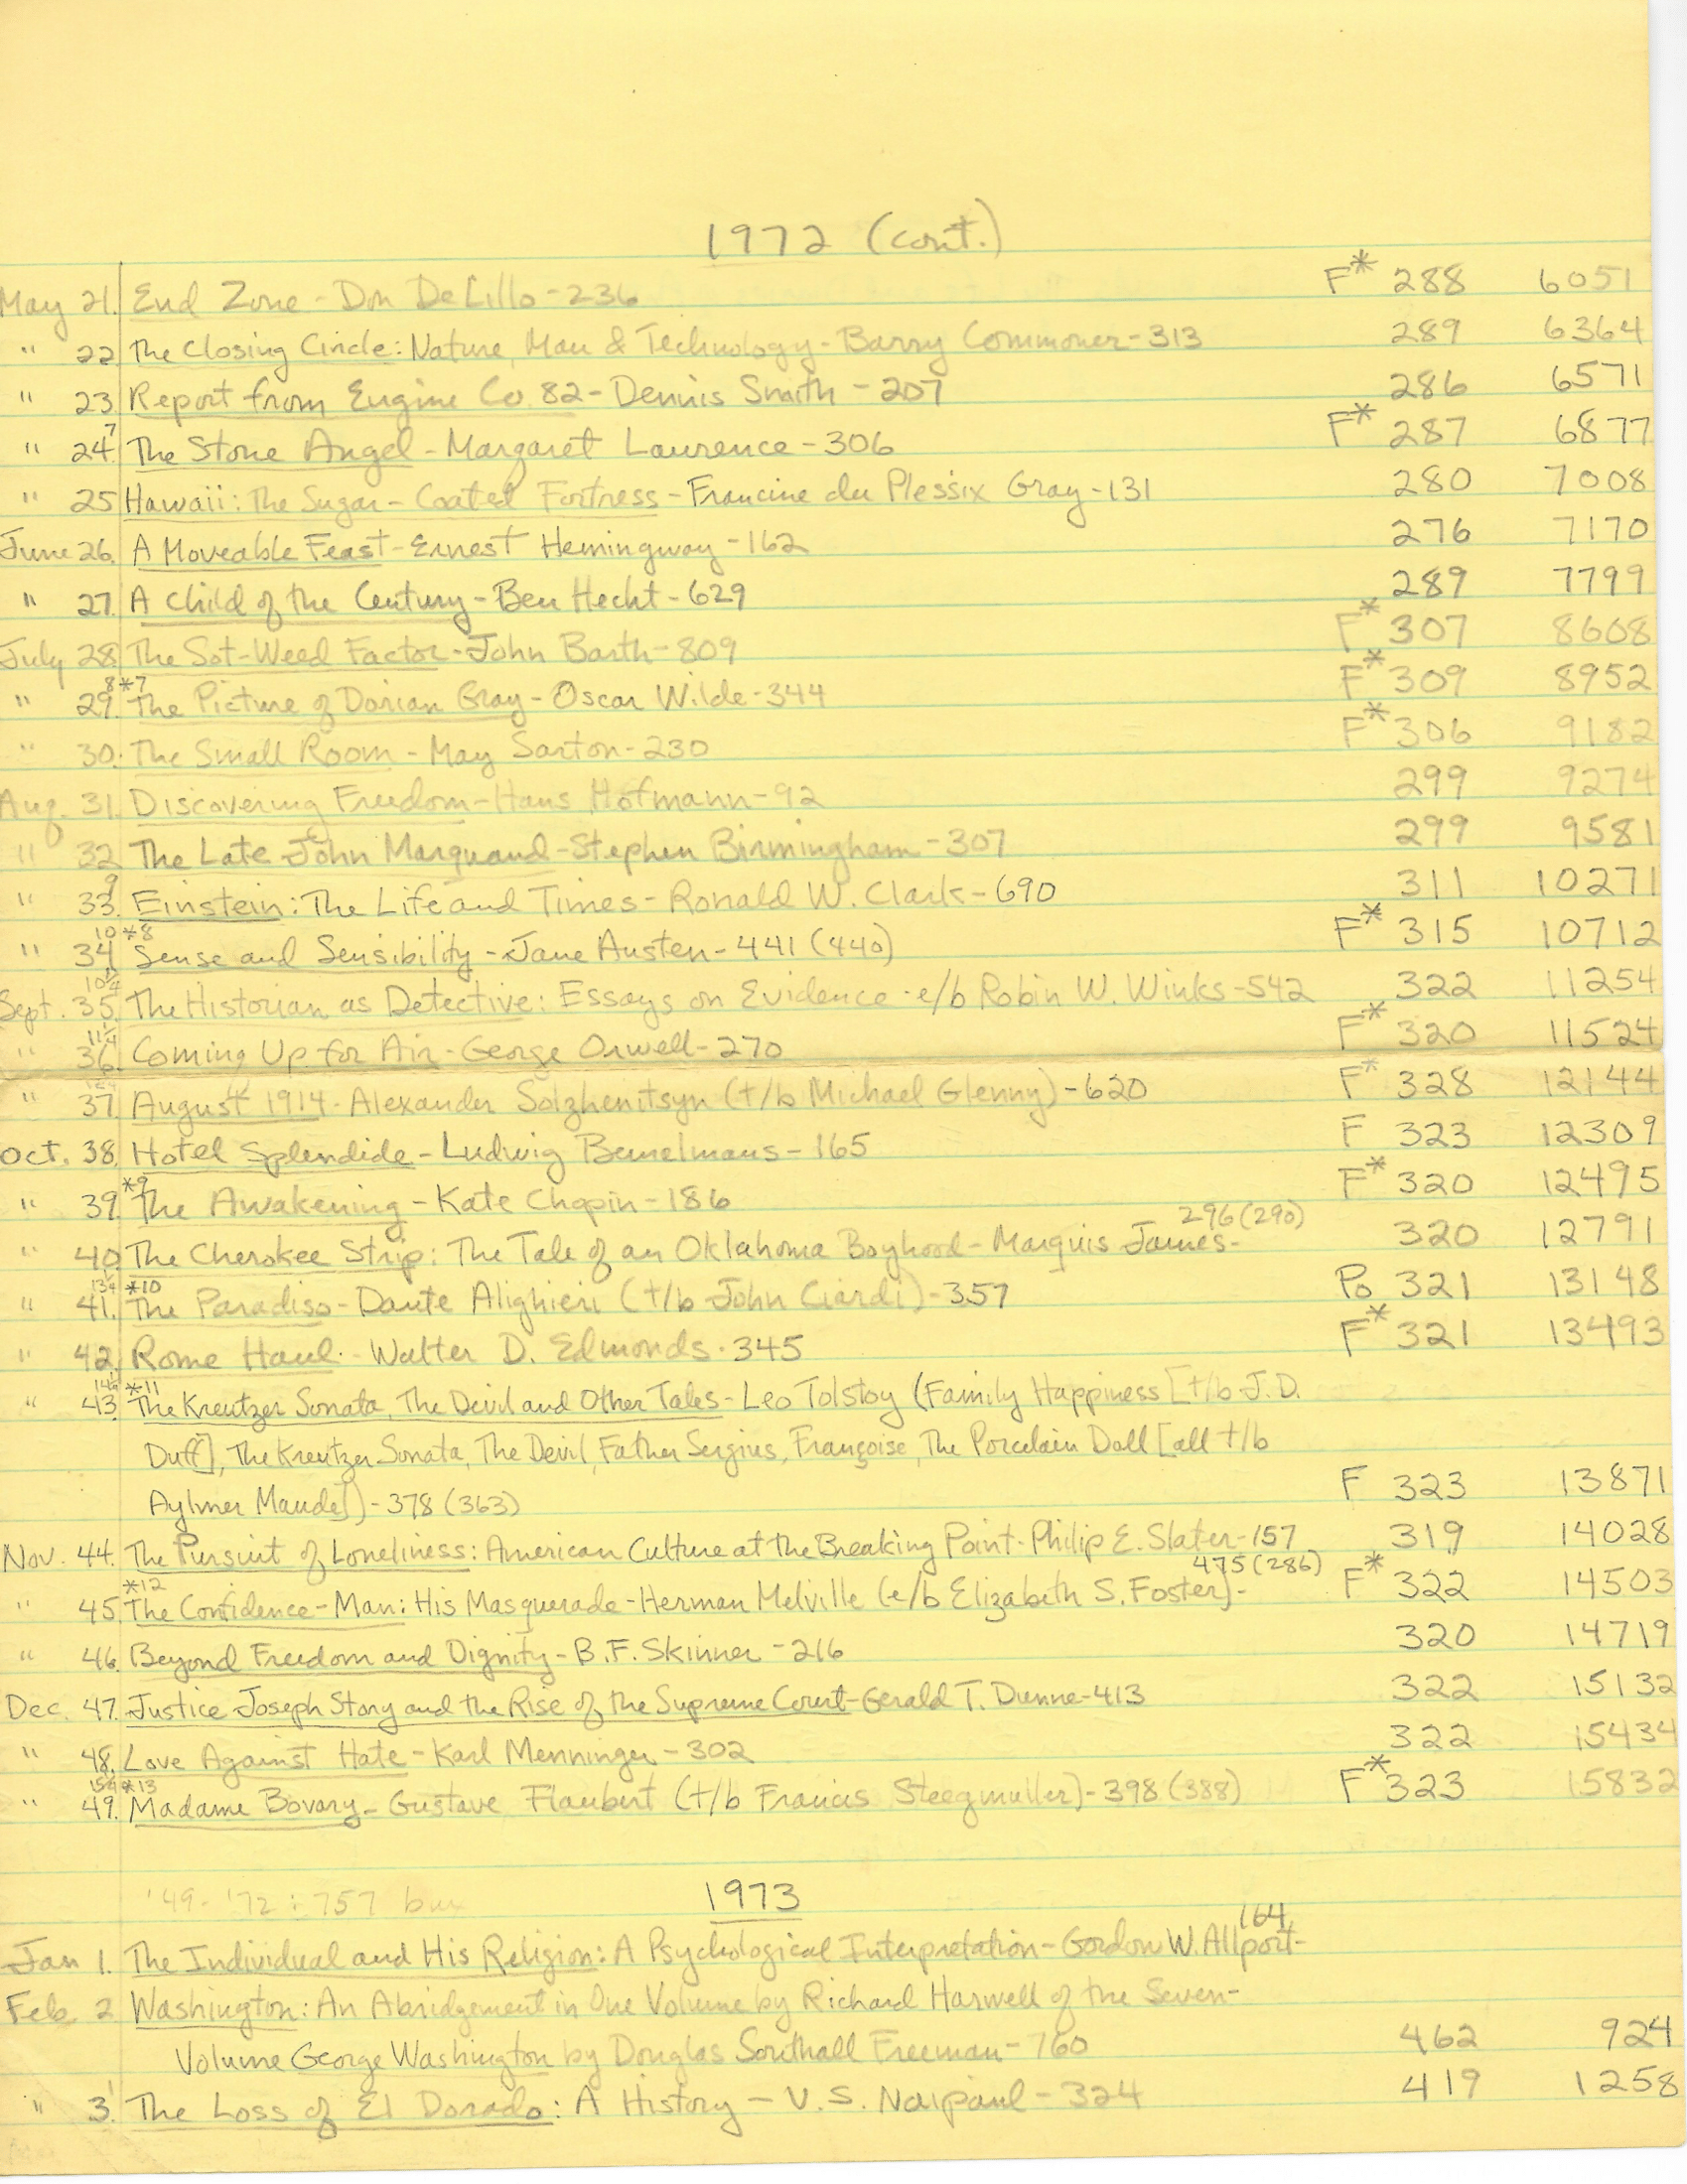 1972 (cont.)
May 21. End Zone - Don DeLillo - 236 F* 288 6051
" 22. The Closing Circle: Nature, Man & Technology - Barry Commoner - 313 289 6364
" 23. Report from Engine Co. 82 - Dennis Smith - 207 286 6571
7
" 24. The Stone Angel - Margaret Laurence - 306 F* 287 6877
" 25. Hawaii: The Sugar-Coated Fortress - Francine du Plessix Gray - 131 280 7008
June 26. A Moveable Feast - Ernest Hemingway - 162 276 7170
" 27. A Child of the Century - Ben Hecht - 629 289 7799
July 28. The Sot-Weed Factor - John Barth - 809 F* 307 8608
8 *7
" 29. The Picture of Dorian Gray - Oscar Wilde - 344 F* 309 8952
" 30. The Small Room - May Sarton - 230 F* 306 9182
Aug. 31. Discovering Freedom - Hans Hofmann - 92 299 9274
" 32. The Late John Marquand - Stephen Birmingham - 307 299 9581
9
" 33. Einstein: The Life and Times - Ronald W. Clark - 690 311 10271
10 *8
" 34. Sense and Sensibility - Jane Austen - 441 (440) F* 315 10712
Sept. 35. The Historian as Detective: Essays on Evidence - e/b Robin W. Winks - 542 322 11254
11 1/4
" 36. Coming Up for Air - George Orwell - 270 F* 320 11524
" 37. August 1914 - Alexander Solzhenitsyn (t/b Michael Glenny) - 620 F* 328 12144
Oct. 38. Hotel Splendide - Ludwig Bemelmans - 165 F 323 12309
*9
" 39. The Awakening - Kate Chopin - 186 F* 320 12495
296 (290)
" 40. The Cherokee Strip: The Tale of an Oklahoma Boyhood - Marquis James - 320 12791
13 1/4 *10
" 41. The Paradiso - Dante Alighieri (t/b John Ciardi) - 357 Po 321 13148
" 42. Rome Haul - Walter D. Edmonds - 345 F* 321 13493
*11
" 43. The Kreutzer Sonata, The Devil and Other Tales - Leo Tolstoy (Family Happiness [t/b J.D.
Duff], The Kreutzer Sonata, The Devil, Father Sergius, Françoise, The Porcelain Doll [all t/b
Aylmer Maude]) - 378 (363) F 323 13871
Nov. 44. The Pursuit of Loneliness: American Culture at the Breaking Point - Philip E. Slater - 157 319 14028
*12 475 (286)
" 45. The Confidence-Man: His Masquerade - Herman Melville (e/b Elizabeth S. Foster) - F* 322 14503
" 46. Beyond Freedom and Dignity - B.F. Skinner - 216 320 14719
Dec. 47. Justice Joseph Story and the Rise of the Supreme Court - Gerald T. Dunne - 413 322 15132
" 48. Love Against Hate - Karl Menninger - 302 322 15434
*13
" 49. Madame Bovary - Gustave Flaubert (t/b Francis Steegmuller) - 398 (388) F* 323 15832
'49-'72: 757
1973
164
Jan 1. The Individual and His Religion: A Psychological Interpretation - Gordon W. Allport -
Feb. 2 Washington: An Abridgement in One Volume by Richard Harwell of the Seven-
Volume George Washington by Douglas Southall Freeman - 760 462 924
1
" 3. The Loss of El Dorado: A History - V.S. Naipaul - 324 419 1258